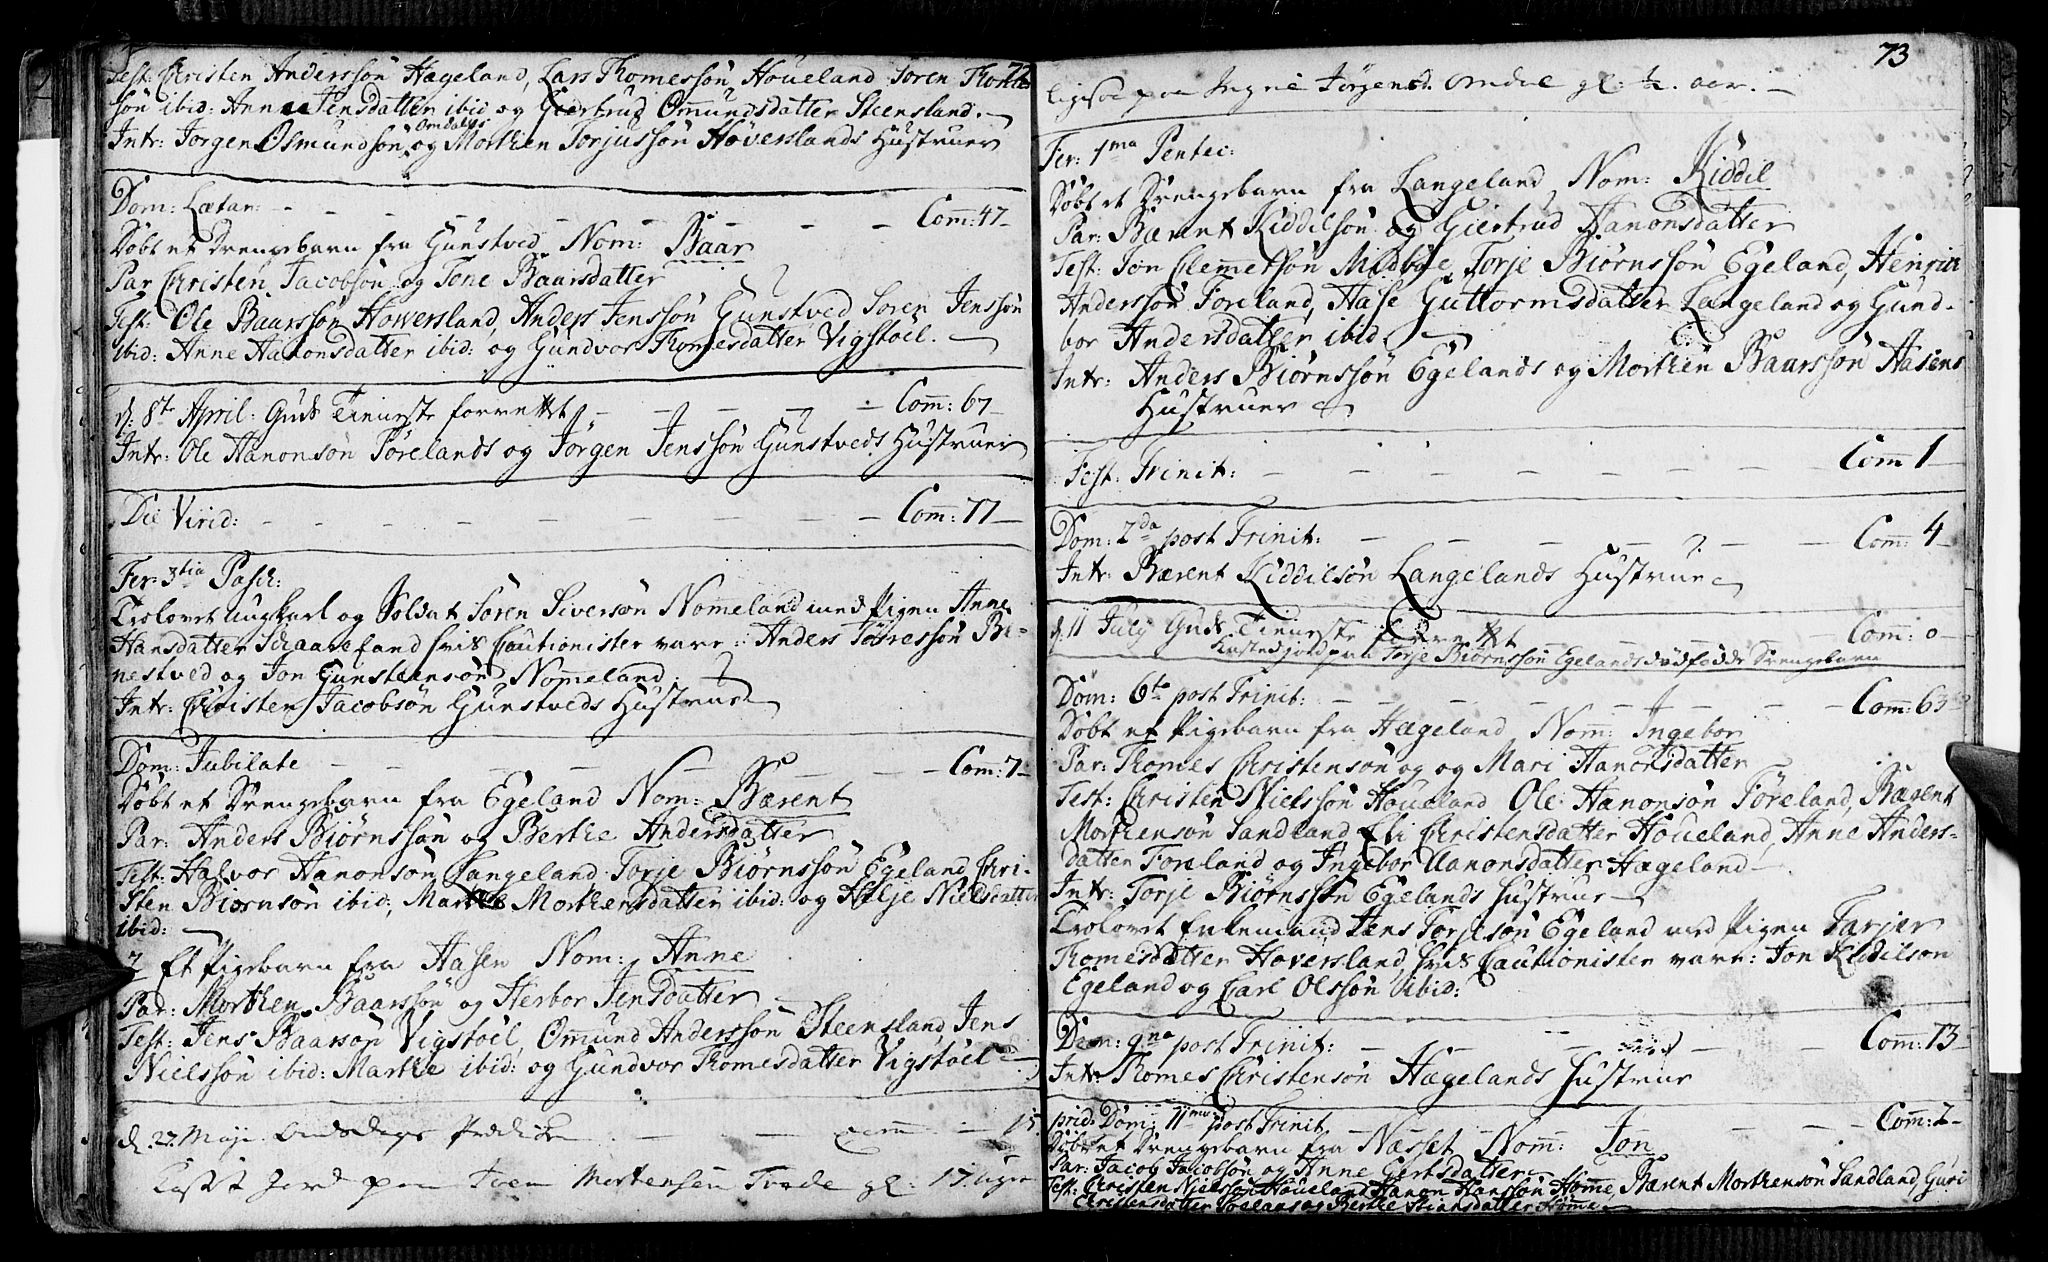 72
Test: Christen Anderssøn Hægeland, Lars Thomessøn Houeland Søren Thomes
søn ibid: Anne Jensdatter ibid og Giertrud Omundsdatter Steensland.
Intr: Jørgen Osmundsøn Omdals og Morthen Torjussøn Høverslands Hustruer
Dom: Lætar: Com: 47
Døbt et Drengebarn fra Gunstved Nom: Baar
Par Christen Jacobsøn og Tone Baarsdatter
Test: Ole Baarssøn Howersland, Anders Jenssøn Gunstved Søren Jenssøn
ibid: Anne Aanonsdatter ibid: og Gundvor Thomesdatter Vigstøel.
d. 8de April: Guds Tieneste forrettet Com: 67
Intr: Ole HanonsønFørelands og Jørgen Jenssøn Gunstveds Hustruer
Die Virid: Com: 77
Fer: 3tia Pasch:
Trolovet Ungkarl og Soldat Søren Siversøn Nomeland med Pigen Anne
Hansdatter Schaarefand hvis Cautionister vare: Anders Tørressøn Be-
nestved og Jon Gunsteensøn Nomeland.
Intr: Christen Jacobsøn Gunstveds Hustrue
Dom: Jubilate Com: 7
Døbt et Drengebarn fra Egeland Nom: Bærent
Par: Anders Biørnssøn og Berthe Andersdatter
Test: Halvor Hanonsøn Langeland Torje Biørnssøn Egeland Chri-
sten Biørnsøn ibid: Marthe Morthensdatter ibid: og Helje Nielsdatter
ibid:
2 Et Pigebarn fra Aasen Nom: Anne
Par: Morthen Baarssøn og Herbor Jensdatter
Test: Jens Baarsøn Vigstøel, Omund Anderssøn Steensland, Jens
Nielssøn ibid: Marthe ibid: og Gundvor Thomesdatter Vigstøel
d. 27. Maji Onsdags Prædiken com: 15.
Kast Jord paa Sven Mortensen Tvede gl: 17 uger
73
ligesaa paa Ingni Jørgensd. Omdal gl: ½ aar.
Fer: 1ma Pentec:
Døbt et Drengebarn fra Langeland Nom: Kiddil
Par: Bærent Kiddilsøn og Giertrud Hanonsdatter
Test: Jon Clemetsøn Midbøe, Torje Biørnssøn Egeland, Henrik
Anderssøn Foreland, Aase Guttormsdatter Langeland og Gund-
bor Andersdatter ibid.
Intr: Anders Biørnssøn Egelands og Morthen Baarssøn Aasens
Hustruer
Fest: Trinit: Com 1
Dom: 2da post Trinit: Com: 4
Intr: Bærent Kiddilsøn Langelands Hustrue
d. 11 July Guds Tieneste forrettet Com: 0
Kasted jord paa Torje Biørnssøn Egelands dødfødde Drengebarn
Dom: 6ta post Trinit: Com: 63
Døbt et Pigebarn fra Hægeland Nom: Ingebor
Par: Thomes Christensøn og og Mari Hanonsdatter
Test: Christen Nielssøn Houeland Ole Hanonsøn Føreland, Bærent
Morthensøn Sandland, Eli Christensdatter Houeland, Anne Anders-
datter Foreland og Ingebor Aanonsdatter Hægeland
Intr: Torje Biørnssøn Egelands Hustrue
Trolovet Enkemand Jens Torjesøn Egeland med Pigen Tarjer
Thomesdatter Hoversland hvis Cautionister vare: Jon Kiddilsøn
Egeland og Carl Olssøn ibid:
Dom: 9na post Trinit: Com: 73
Intr: Thomes Christensøn Hægelands Hustrue
prid: Dom: 11ma post Trinit. Com: 2
Døbt et Drengebarn fra Næsset Nom: Jon
Par: Jacob Jacobsøn og Anne Gertsdatter
Test: Christen Nielssøn Houeland Hanon Hanssøn Homme, Bærent Morthensøn Sandland, Guri
Christensdatter og Berthe Stiansdatter Homme